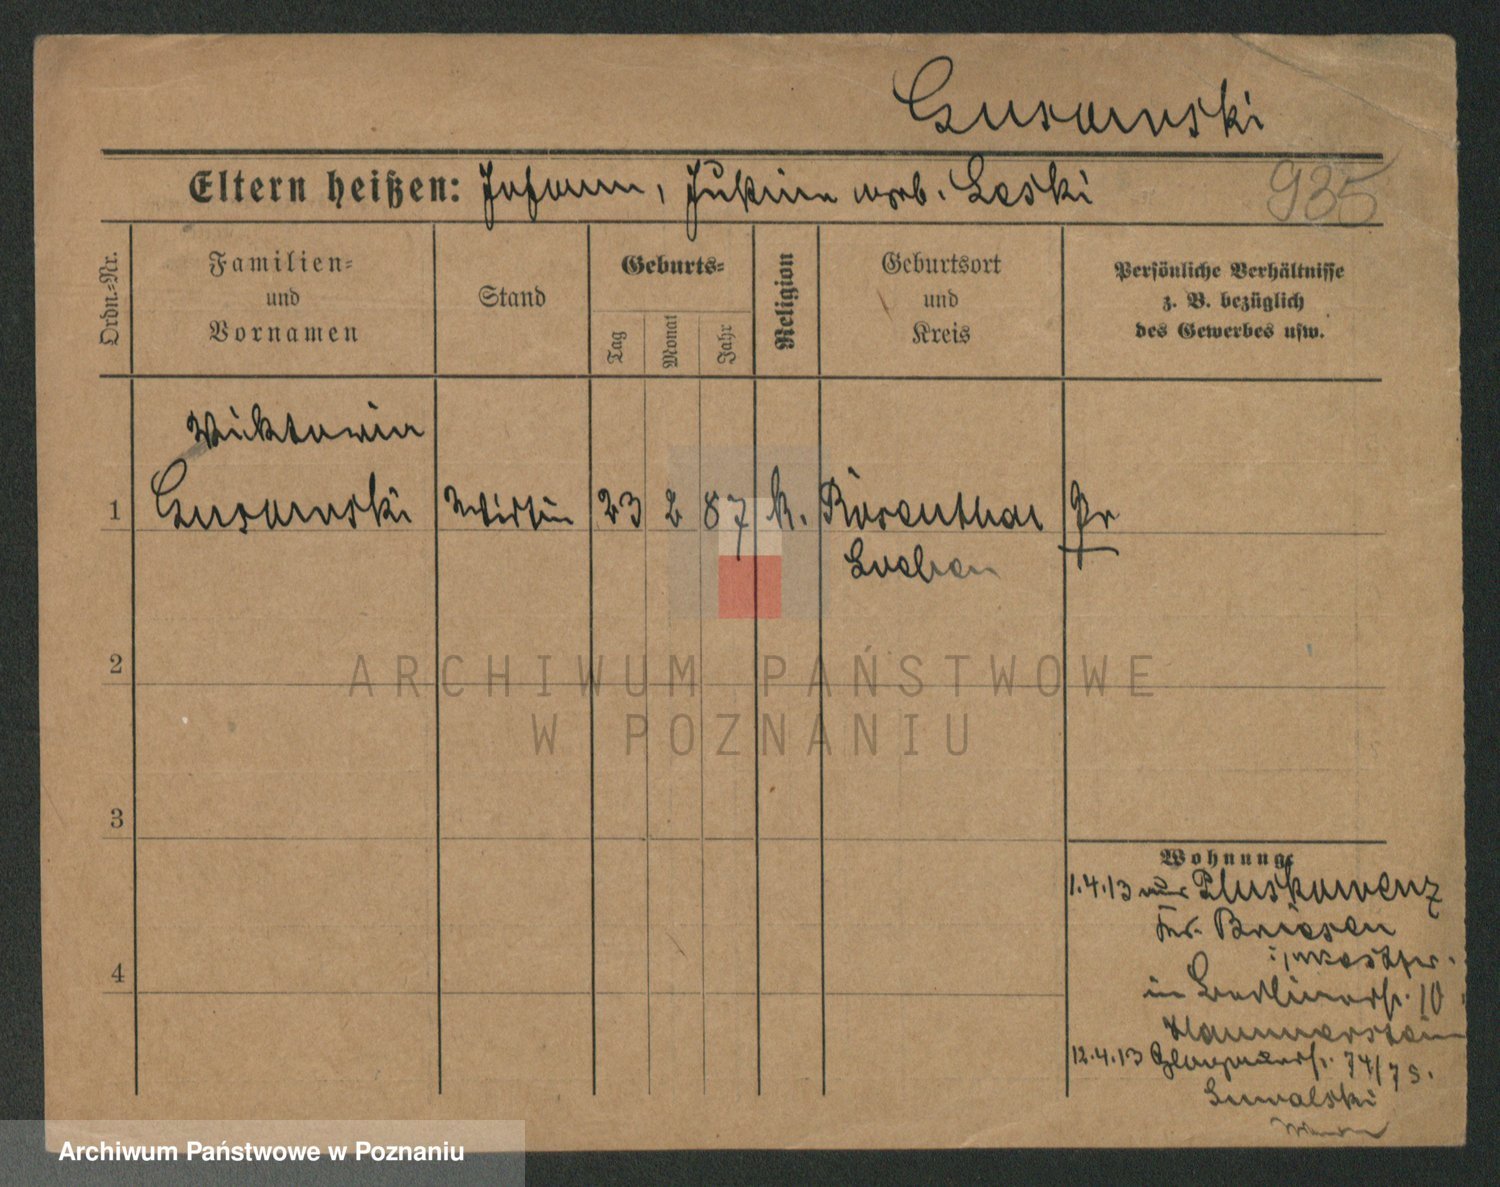 Gusowski
Eltern heißen: Johann, Justina verb. Leski
935
Ordn.-Nr.
Familien-
und
Vornamen
Stand
Geburts-
Tag
Monat
Jahr
Religion
Geburtsort
und
Kreis
Persönliche Verhältnisse
z. B. bezüglich
des Gewerbes usw.
Wiktoria
1 Gusowski Wirtin 23 2 87 k. Rosenthal Pr
Loebau
2
3
4
Wohnung:
1.4.13 aus Pluskowenz
Kr. Briesen
in Berlinerstr. 10
Hammerstein
12.4.13 Glogauerstr. 74/75.
ARCHIWUM PAŃSTWOWE
W POZNANIU
Archiwum Państwowe w Poznaniu